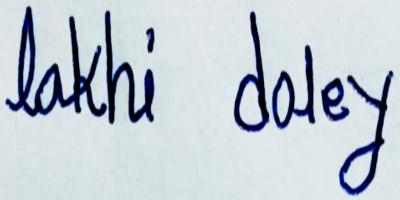 lakhi doley